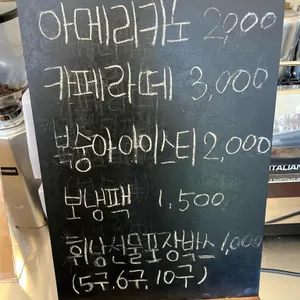 아메리카노 2,000
카페라떼 3,000
복숭아아이스티 2,000
보냉팩 1,500
휘낭선물포장박스 1,000
(5구, 6구, 10구)
ITALIAN